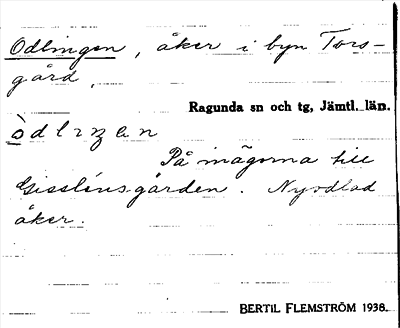 Odlingen, åker i byn Tors-
gård.
Ragunda sn och tg, Jämtl. län.
På inägorna till
Gisslénsgården. Nyodlad
åker.
BERTIL FLEMSTRÖM 1938.